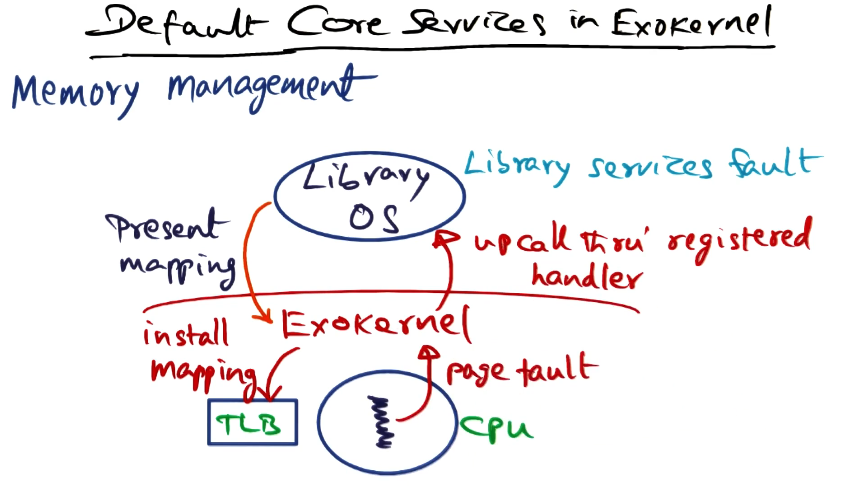 Default Core Services in Exokernel
Memory management
Library
OS
Library services fault
Present
mapping
upcall thru' registered
handler
install
mapping
Exokernel
page fault
TLB
CPU